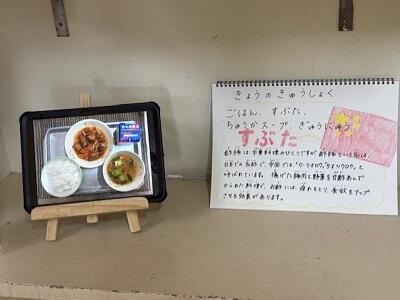 きょうの きゅうしょく
ごはん、すぶた、
ちゅうかスープ、ぎゅうにゅう
すぶた
酢豚は、中華料理のひとつですが、酢豚という名は、
日本での名称で、中国では、「クーラオロウ」
呼ばれています。揚げた豚肉と野菜を甘酢あんで
からめた料理で、お酢には、疲れをとり、食欲をアップ
させる効果があります。